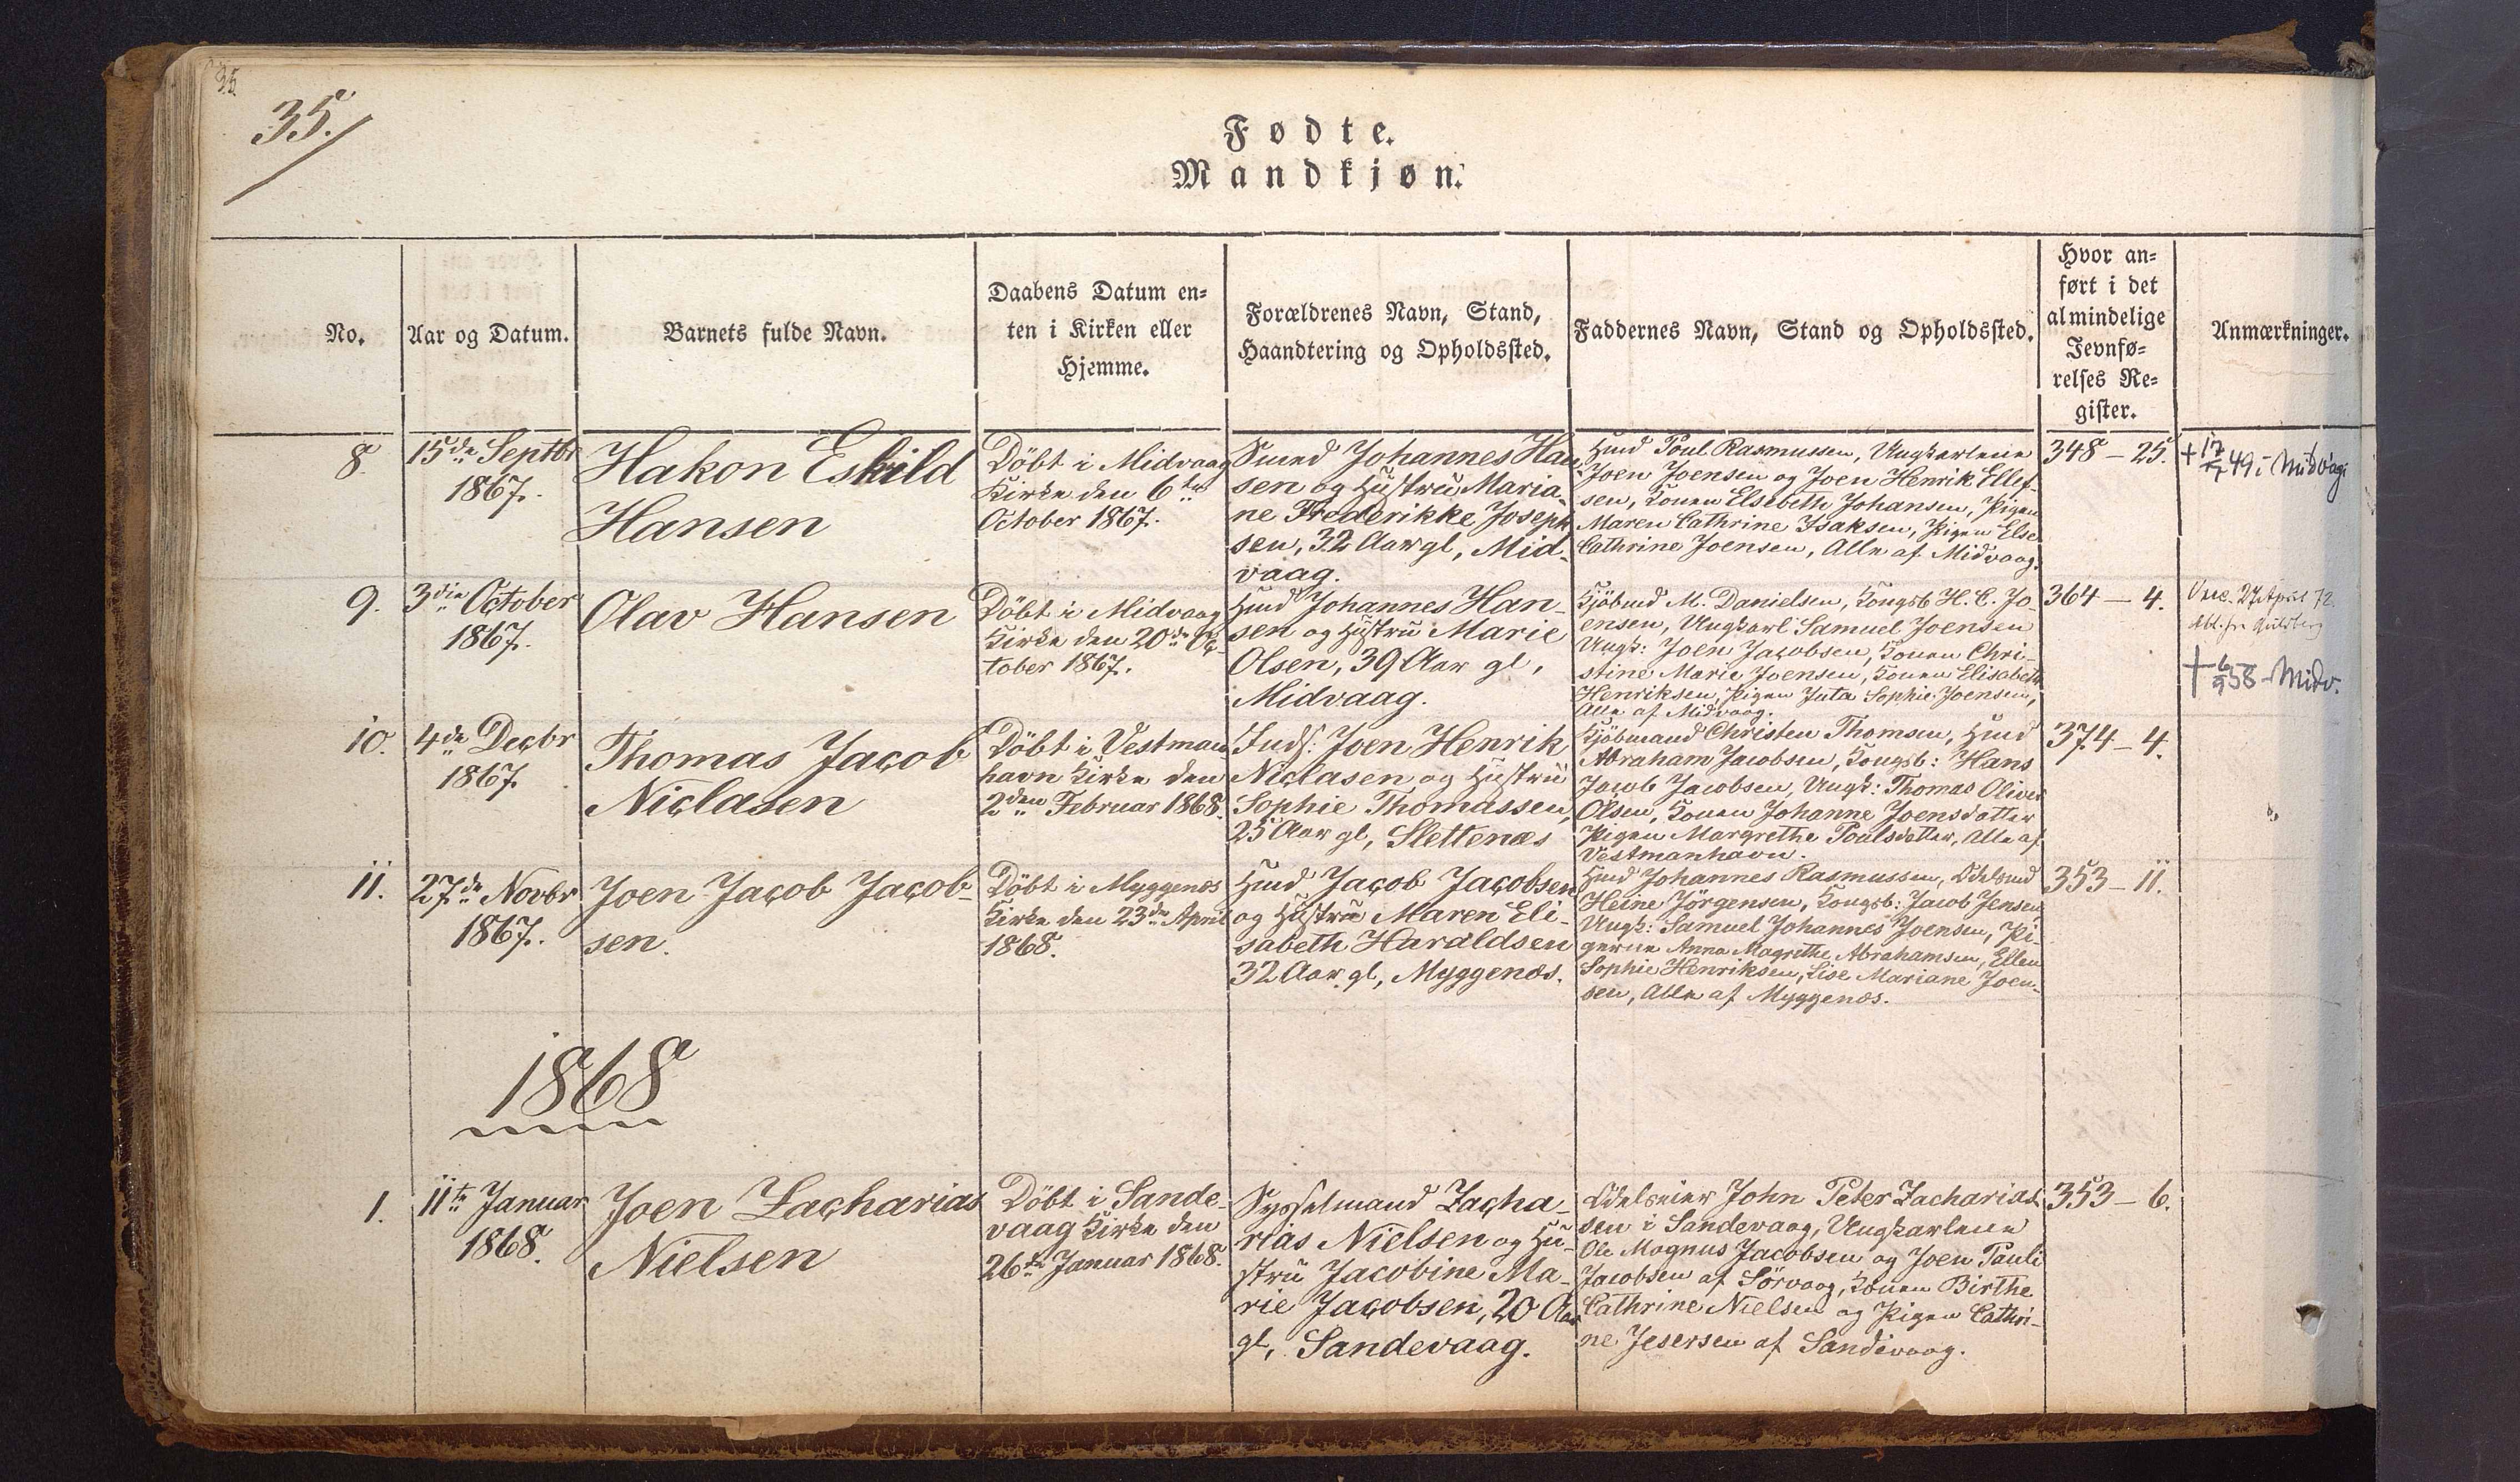 35.
35.
Fødte.
Mandkjøn.
No.
Aar og Datum.
Barnets fulde Navn.
Daabens Datum en=
ten i Kirken eller
Hjemme.
Forældrenes Navn, Stand,
Haandtering og Opholdssted.
Faddernes Navn, Stand og Opholdssted.
Hvor an=
ført i det
almindelige
Jevnfø=
relses Re=
gister.
Anmærkninger.
8.
15de Septbr
1867.
Hakon Eskild
Hansen
Döbt i Midvaag
Kirke den 6te
October 1867.
Smed Johannes Han
sen og Hustru Maria-
ne Frederikke Joseph
sen, 32 Aar gl, Mid-
vaag.
Hmd Poul Rasmussen, Ungkarlene
Joen Joensen og Joen Henrik Ellef-
sen, Konen Elsebeth Johansen, Pigen
Maren Cathrine Isaksen, Pigen Else
Cathrine Joensen, Alle af Midvaag.
348 - 25.
49 i Midvag.
9.
3die October
1867.
Olav Hansen
Döbt i Midvaag
Kirke den 20de Oc-
tober 1867.
Hmd Johannes Han-
sen og Hustru Marie
Olsen, 39 Aar gl,
Midvaag.
Kjöbmd M. Danielsen, Kongsb H. C. Jo-
ensen, Ungkarl Samuel Joensen
Ungk: Joen Jacobsen, Konen Chri-
stine Marie Joensen, Konen Elisabeth
Henriksen, Pigen Juta Sophie Joensen,
Alle af Midvaag.
364 - 4.
Vacc. 27 April 72.
58 - Midv.
10.
4de Decbr
1867.
Thomas Jacob
Niclasen
Döbt i Vestman
havn Kirke den
2den Februar 1868.
Inds: Joen Henrik
Niclasen og Hustru
Sophie Thomassen,
25 Aar gl, Slettenæs
Kjöbmand Christen Thomsen, Hmd
Abraham Jacobsen, Kongsb: Hans
Jacob Jacobsen, Ungk: Thomas Oliver
Olsen, Konen Johanne Joensdatter
Pigen Margrethe Poulsdatter, Alle af
Vestmanhavn.
374 - 4.
11.
27de Novbr
1867.
Joen Jacob Jacob-
sen.
Döbt i Myggenæs
Kirke den 23de April
1868.
Hmd Jacob Jacobsen
og Hustru Maren Eli-
sabeth Haraldsen
32 Aar gl, Myggenæs.
Hmd Johannes Rasmussen, Odelsmd
Heine Jörgensen, Kongsb: Jacob Jensen
Ungk: Samuel Johannes Joensen, Pi-
gerne Anna Magrethe Abrahamsen, Ellen
Sophie Henriksen, Lise Mariane Joen-
sen, Alle af Myggenæs.
353 - 11.
1868
1.
11te Januar
1868.
Joen Zacharias
Nielsen
Döbt i Sande-
vaag Kirke den
26de Januar 1868.
Sysselmand Zacha-
rias Nielsen og Hu-
stru Jacobine Ma-
rie Jacobsen, 20 Aar
gl, Sandevaag.
Odelseier John Peter Zacharias-
sen i Sandevaag, Ungkarlene
Ole Magnus Jacobsen og Joen Pauli
Jacobsen af Sörvaag, Konen Birthe
Cathrine Nielsen og Pigen Cathri-
ne Jesersen af Sandevaag.
353 - 6.